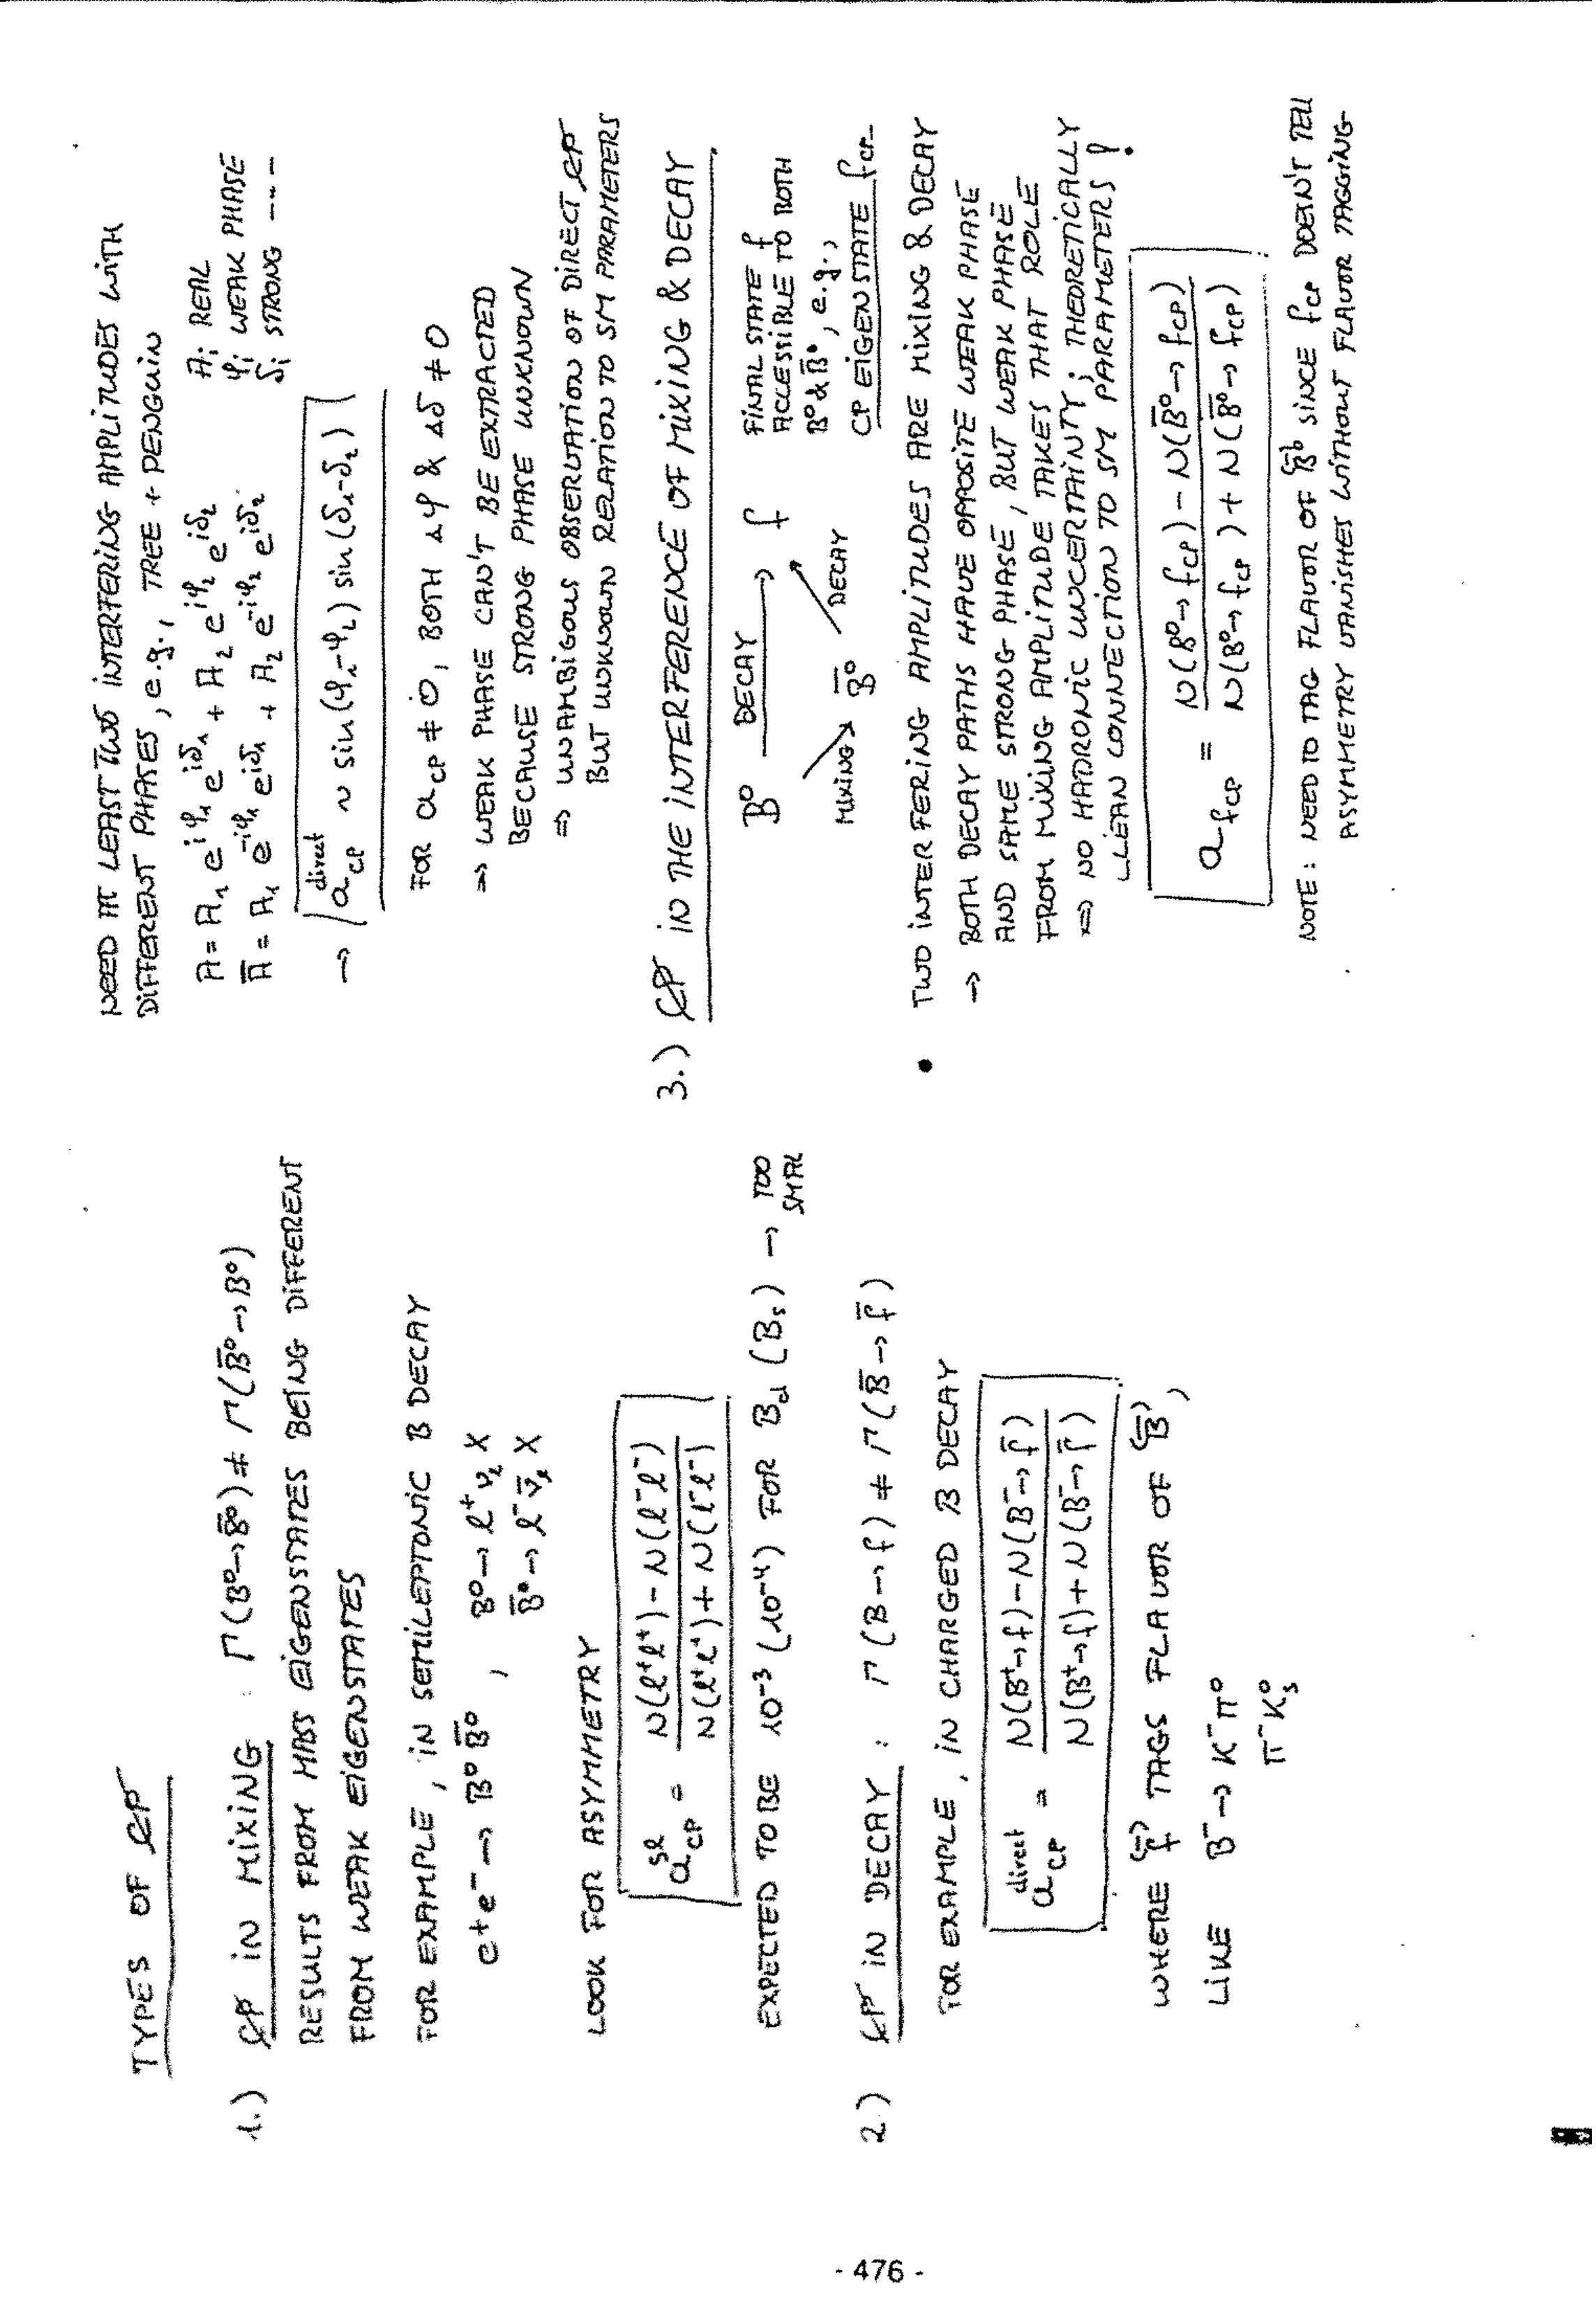 TYPES OF C̸P̸
1.) C̸P̸ IN MIXING : Γ(B⁰→B̄⁰) ≠ Γ(B̄⁰→B⁰)
RESULTS FROM MASS EIGENSTATES BEING DIFFERENT
FROM WEAK EIGENSTATES
FOR EXAMPLE, IN SEMILEPTONIC B DECAY
e⁺e⁻ → B⁰B̄⁰ , B⁰→ℓ⁺νₗX
B̄⁰→ℓ⁻ν̄ₗX
LOOK FOR ASYMMETRY
a_CP^sl = (N(ℓ⁺ℓ⁺) - N(ℓ⁻ℓ⁻)) / (N(ℓ⁺ℓ⁺) + N(ℓ⁻ℓ⁻))
EXPECTED TO BE 10⁻³ (10⁻⁴) FOR B_d (B_s) → TOO
SMAL
2.) C̸P̸ IN DECAY : Γ(B→f) ≠ Γ(B̄→f̄)
FOR EXAMPLE, IN CHARGED B DECAY
a_CP^direct = (N(B⁺→f) - N(B⁻→f̄)) / (N(B⁺→f) + N(B⁻→f̄))
WHERE f⁽⁻⁾ TAGS FLAVOR OF B⁽⁻⁾,
LIKE B⁻→K⁻π⁰
π⁻K_s⁰
NEED AT LEAST TWO INTERFERING AMPLITUDES WITH
DIFFERENT PHASES, e.g., TREE + PENGUIN
A = A₁ e^{iφ₁} e^{iδ₁} + A₂ e^{iφ₂} e^{iδ₂} A_i REAL
φ_i WEAK PHASE
Ā = A₁ e^{-iφ₁} e^{iδ₁} + A₂ e^{-iφ₂} e^{iδ₂} δ_i STRONG ---
→ a_CP^direct ~ sin(φ₁-φ₂) sin(δ₁-δ₂)
FOR a_CP ≠ 0, BOTH Δφ & Δδ ≠ 0
⇒ WEAK PHASE CAN'T BE EXTRACTED
BECAUSE STRONG PHASE UNKNOWN
⇒ UNAMBIGOUS OBSERVATION OF DIRECT C̸P̸
BUT UNKNOWN RELATION TO SM PARAMETERS
3.) C̸P̸ IN THE INTERFERENCE OF MIXING & DECAY
B⁰ DECAY → f
MIXING B̄⁰ DECAY
FINAL STATE f
ACCESSIBLE TO BOTH
B⁰ & B̄⁰, e.g.,
CP EIGENSTATE f_CP
• TWO INTERFERING AMPLITUDES ARE MIXING & DECAY
→ BOTH DECAY PATHS HAVE OPPOSITE WEAK PHASE
AND SAME STRONG PHASE, BUT WEAK PHASE
FROM MIXING AMPLITUDE TAKES THAT ROLE
⇒ NO HADRONIC UNCERTAINTY; THEORETICALLY
CLEAN CONNECTION TO SM PARAMETERS !
a_fCP = (N(B⁰→f_CP) - N(B̄⁰→f_CP)) / (N(B⁰→f_CP) + N(B̄⁰→f_CP))
NOTE: NEED TO TAG FLAVOR OF B̄⁰ SINCE f_CP DOESN'T TELL
ASYMMETRY VANISHES WITHOUT FLAVOR TAGGING
- 476 -